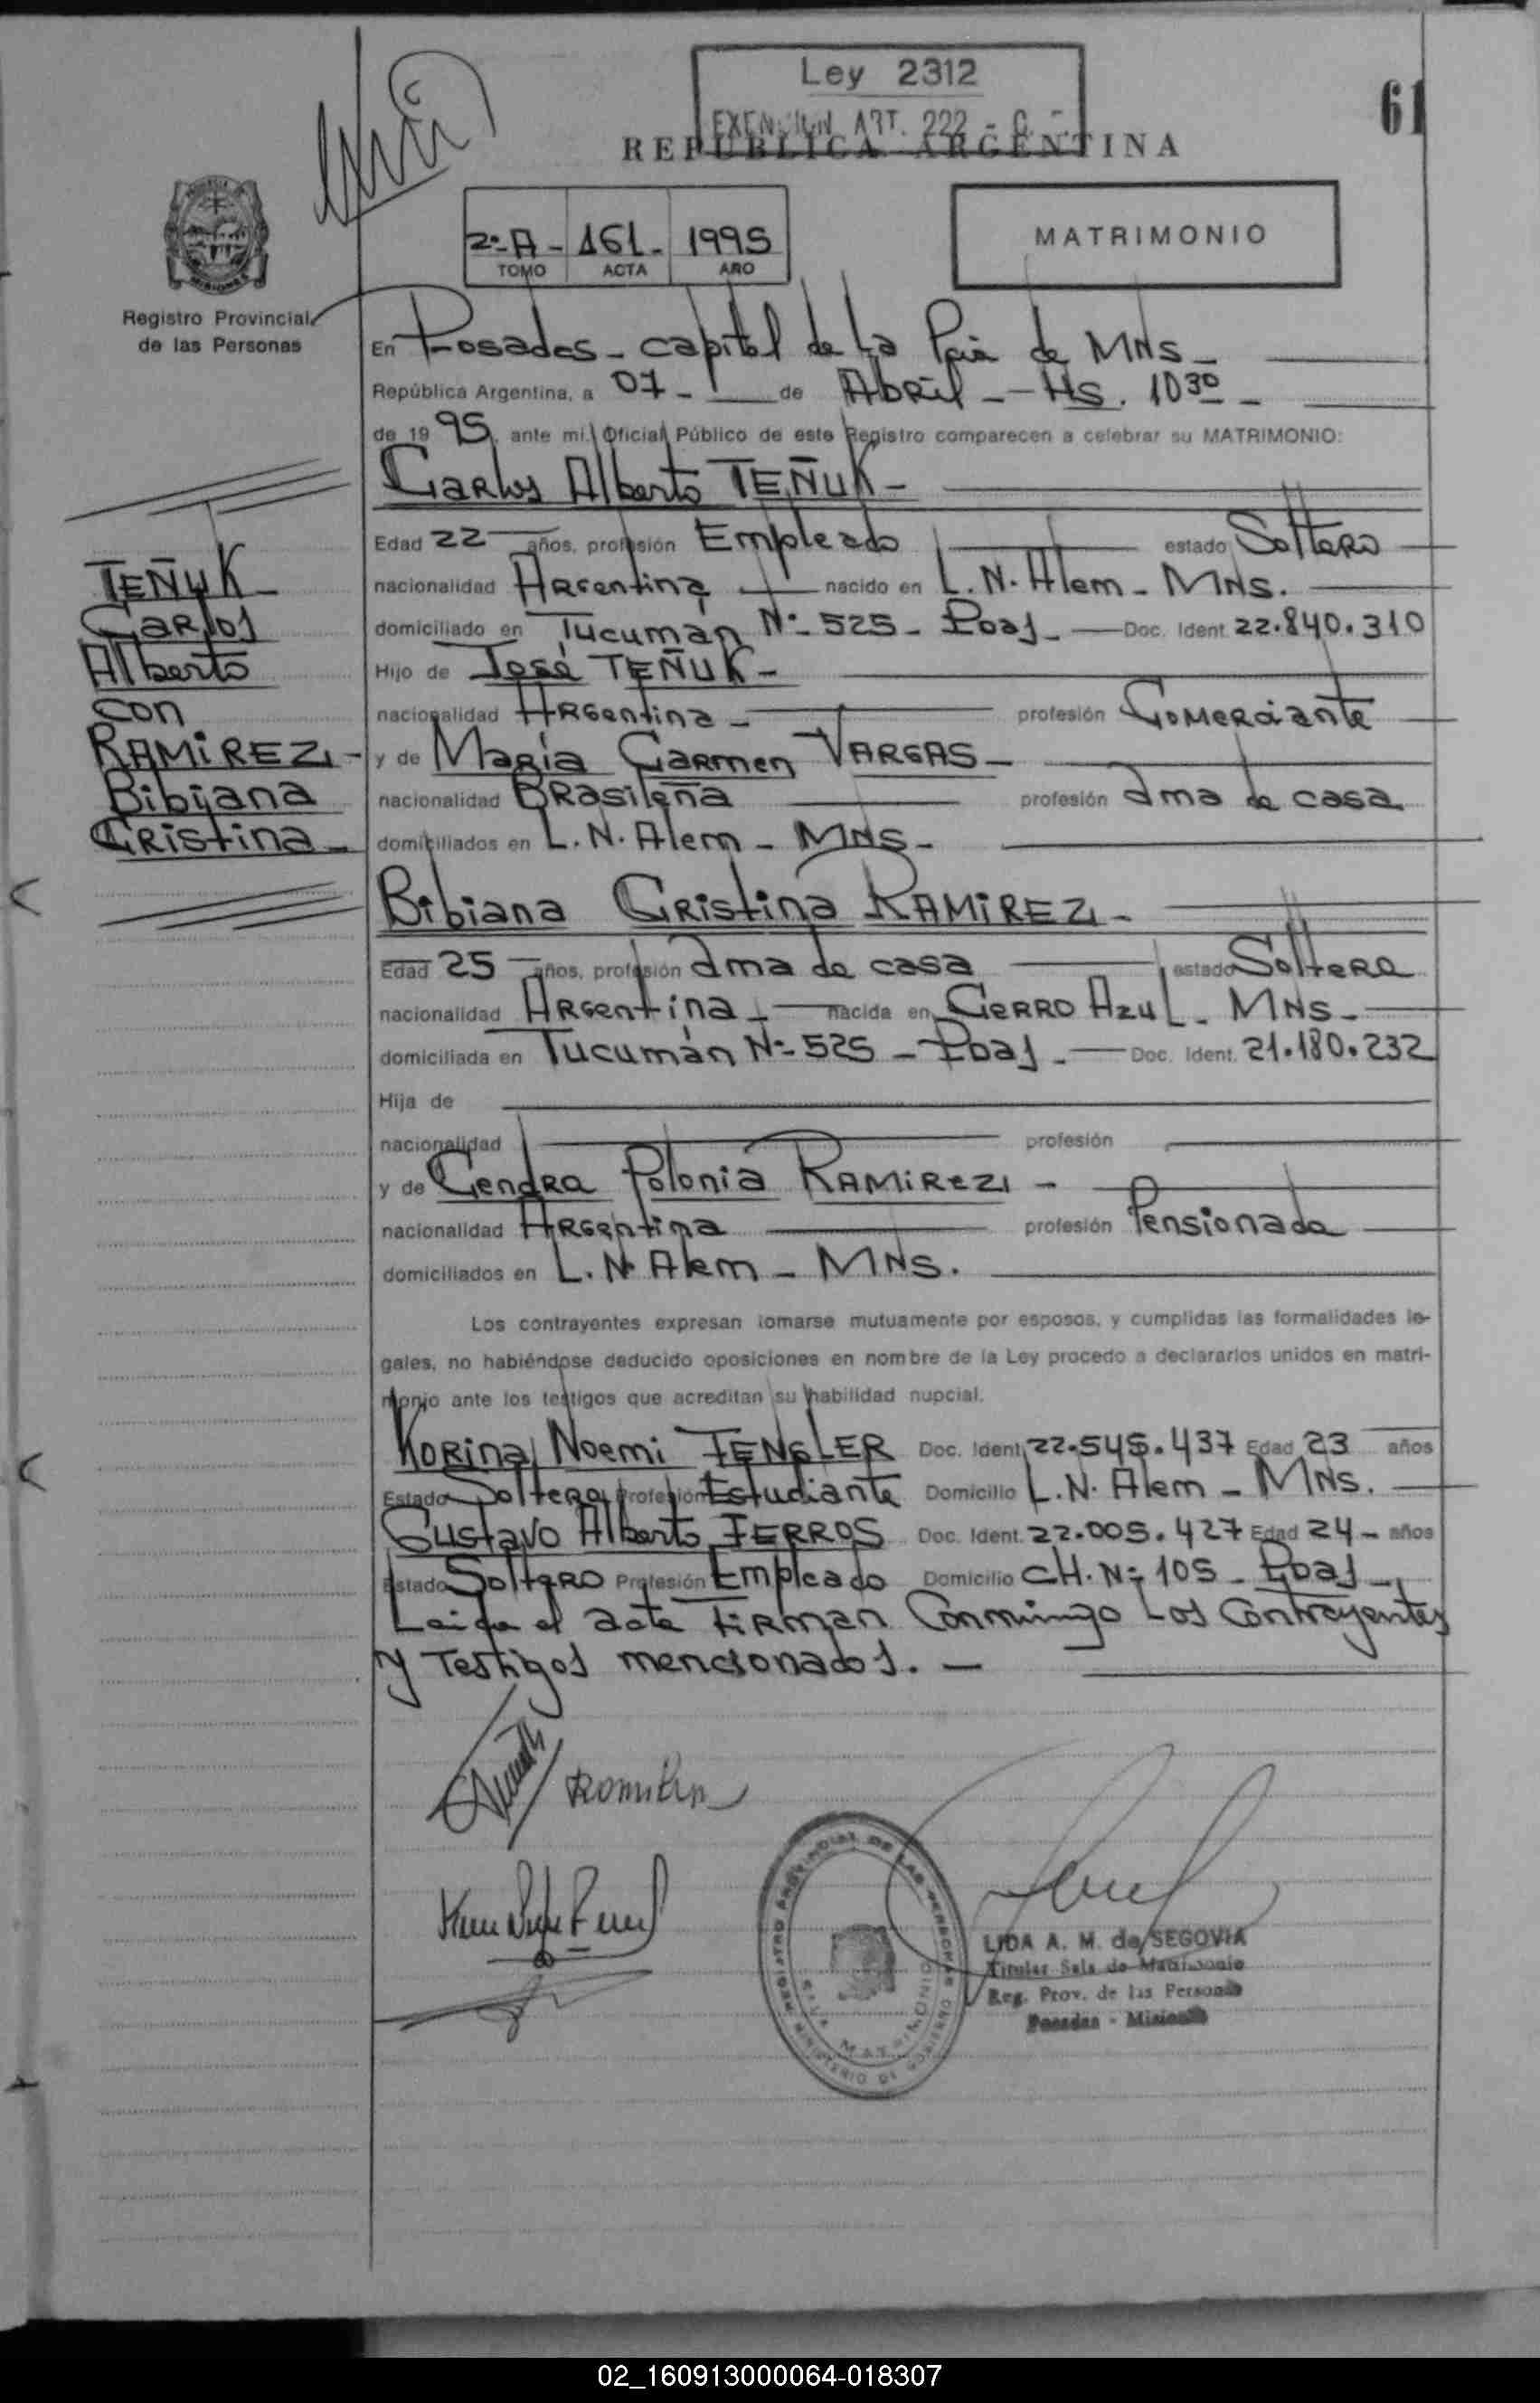 Ley 2312
EXENCION ART. 222
61
REPUBLICA ARGENTINA
2º-A- 161- 1995
TOMO ACTA AÑO
MATRIMONIO
Registro Provincial
de las Personas
En Posadas - capital de la Pcia de MNS -
República Argentina, a 07 - de Abril - Hs. 10 30 -
de 19 95, ante mí, Oficial Público de este Registro comparecen a celebrar su MATRIMONIO:
Carlos Alberto TEÑUK -
Edad 22 años, profesión Empleado estado Soltero
nacionalidad Argentina nacido en L. N. Alem - MNS.
domiciliado en Tucumán Nº 525 - Pdas - Doc. Ident. 22.840.310
Hijo de José TEÑUK -
nacionalidad Argentina - profesión Comerciante
y de María Carmen VARGAS -
nacionalidad Brasileña profesión ama de casa
domiciliados en L. N. Alem - MNS -
TEÑUK -
Carlos
Alberto
con
RAMIREZ -
Bibiana
Cristina -
Bibiana Cristina RAMIREZ -
Edad 25 años, profesión ama de casa estado Soltera
nacionalidad Argentina - nacida en Cerro Azul - MNS -
domiciliada en Tucumán Nº 525 - Pdas - Doc. Ident. 21.180.232
Hija de
nacionalidad profesión
y de Cendra Polonia RAMIREZ -
nacionalidad Argentina profesión Pensionada
domiciliados en L. N. Alem - MNS.
Los contrayentes expresan tomarse mutuamente por esposos, y cumplidas las formalidades le-
gales, no habiéndose deducido oposiciones en nombre de la Ley procedo a declararlos unidos en matri-
monio ante los testigos que acreditan su habilidad nupcial.
Korina Noemi FENGLER Doc. Ident. 22.545.437 Edad 23 años
Estado Soltera Profesión Estudiante Domicilio L. N. Alem - MNS.
Gustavo Alberto FERROS Doc. Ident. 22.005.427 Edad 24 - años
Estado Soltero Profesión Empleado Domicilio CH. Nº 105 - Pdas -
Leida el acta firman Conmingo Los Contrayentes
y Testigos mencionados. -
REGISTRO PROVINCIAL DE LAS PERSONAS
SALA MATRIMONIO
MINISTERIO DE GOBIERNO
LIDA A. M. de SEGOVIA
Titular Sala de Matrimonio
Reg. Prov. de las Personas
Posadas - Misiones
02_160913000064-018307